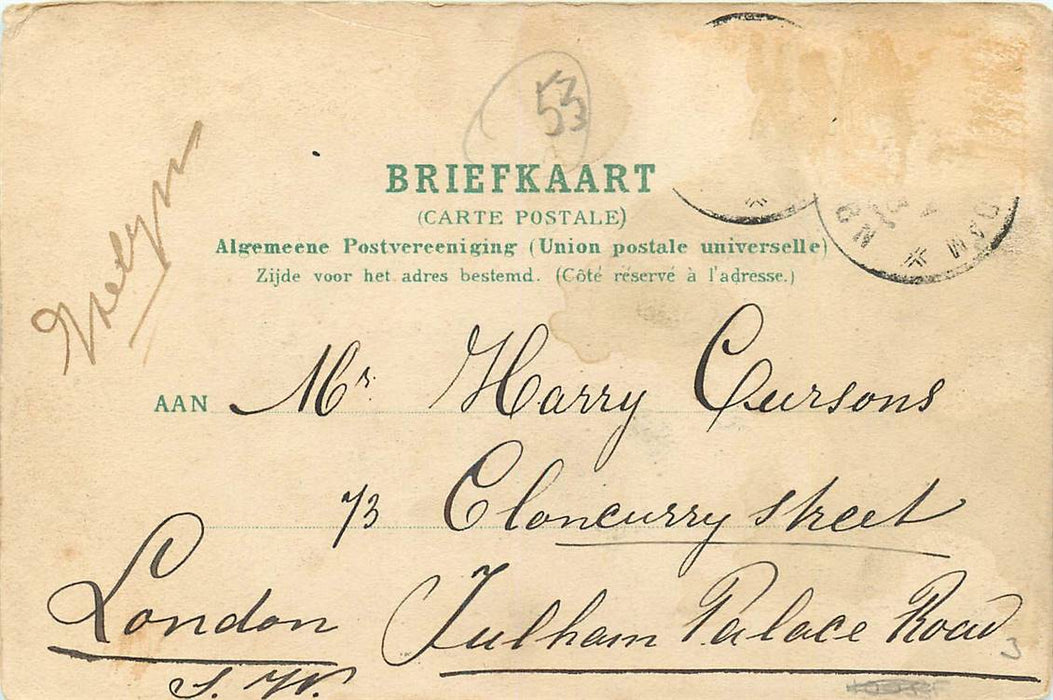 53
BRIEFKAART
(CARTE POSTALE)
Algemeene Postvereeniging (Union postale universelle)
Zijde voor het adres bestemd. (Côté réservé à l'adresse.)
AAN Mr. Harry Cursons
73 Cloncurry Street
London Fulham Palace Road
S.W.
3